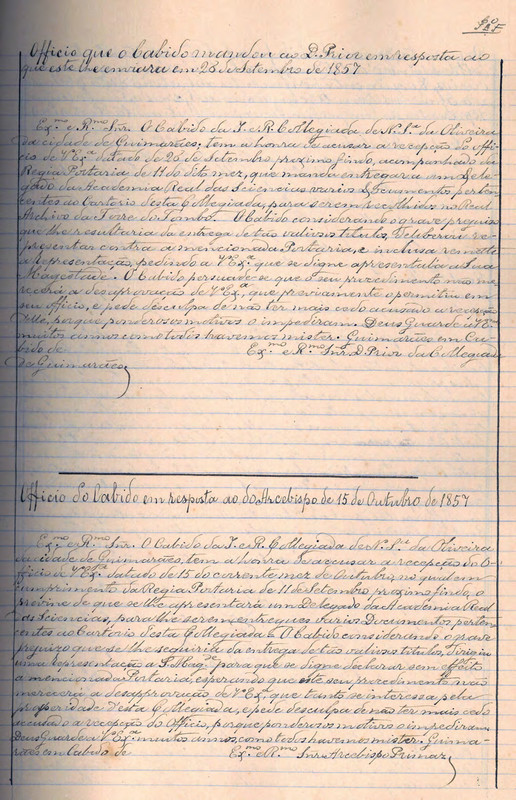 Officio que o Cabido mandou ao D. Prior em resposta ao
que este lhe enviara em 28 de Setembro de 1857
Ex.mo e R.mo Snr. O Cabido da I. e R. Collegiada de N. S.ra da Oliveira
da cidade de Guimarães, tem a honra de acusar a recepção do offi-
cio de V. Ex.ª datado de 26 de Setembro proximo findo, acompanhado da
Regia Portaria de 11 do dito mez, que manda entregar a um Dele-
gado da Academia Real das Sciencias varios Documentos, perten-
centes ao Cartorio desta Collegiada, para serem recolhidos no Real
Archivo da Torre do Tombo. O Cabido considerando o grave prejuizo
que lhe resultaria da entrega de tão valiosos titulos, deliberou re-
presentar contra a mencionada Portaria, e inclusa remette
a Representação, pedindo a V. Ex.ª que se digne apresental-a a Sua
Magestade. O Cabido persuade-se que o seu procedimento não me-
recerá a desaprovação de V. Ex.ª, que previamente o permittiu em
seu officio, e pede desculpa de não ter mais cedo acusado a recepção
delle, porque ponderosos motivos o impediram. Deus Guarde a V. Ex.ª
muitos annos como todos havemos mister. Guimarães em Ca-
bido de Ex.mo e R.mo Snr. D. Prior da Collegiada
de Guimarães
Officio do Cabido em resposta ao do Arcebispo de 15 de Outubro de 1857
Ex.mo e R.mo Snr. O Cabido da I. e R. Collegiada de N. S.ra da Oliveira
da cidade de Guimarães, tem a honra de accusar a recepção do Of-
ficio de V. Ex.ª datado de 15 do corrente mez de Outubro, no qual em
cumprimento da Regia Portaria de 11 de Setembro proximo findo, o
previne de que se lhe apresentará um Delegado da Academia Real
das Sciencias, para lhe serem entregues varios Documentos, perten-
centes ao Cartorio desta Collegiada. O Cabido considerando o grave
prejuizo que se lhe seguiria da entrega de tão valiosos titulos, dirigiu
uma Representação a S. Mag.e para que se digne declarar sem effeito
a mencionada Portaria, esperando que este seu procedimento não
merecerá a desapprovação de V. Ex.ª, que tanto se interessa pela
prosperidade desta Collegiada, e pede desculpa de não ter mais cedo
accusado a recepção do Officio, porque ponderosos motivos o impediram.
Deus Guarde a V. Ex.ª muitos annos, como todos havemos mister. Guima-
rães em Cabido de Ex.mo e R.mo Snr. Arcebispo Primaz